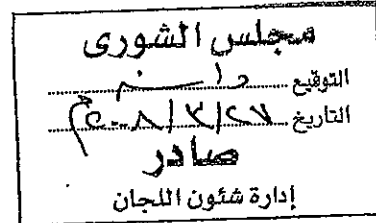 مجلس الشورى
التوقيع
التاريخ ٢٧/٣/٢٠٠٨م
صادر
إدارة شئون اللجان